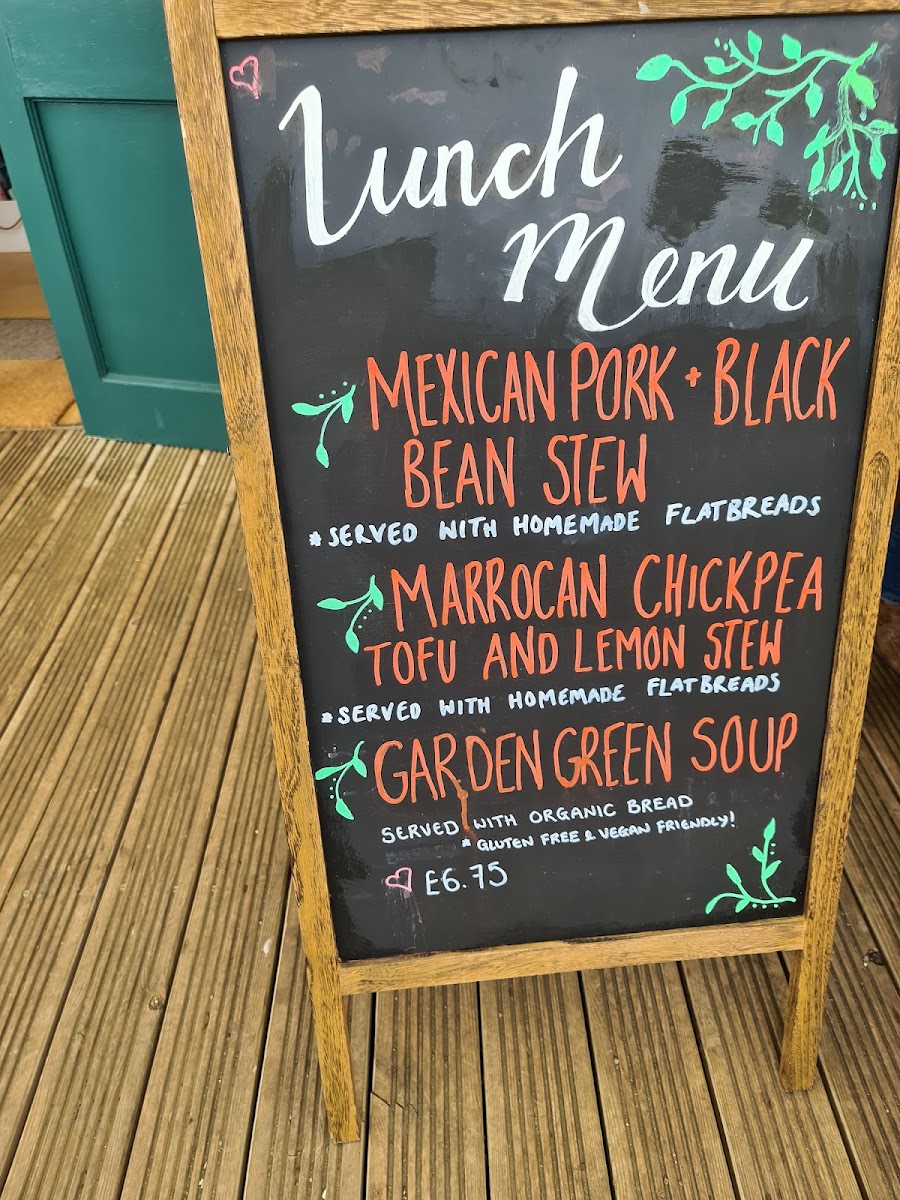 Lunch
Menu
MEXICAN PORK + BLACK
BEAN STEW
*SERVED WITH HOMEMADE FLATBREADS
MARROCAN CHICKPEA
TOFU AND LEMON STEW
*SERVED WITH HOMEMADE FLATBREADS
GARDEN GREEN SOUP
SERVED WITH ORGANIC BREAD
* GLUTEN FREE & VEGAN FRIENDLY!
£6.75